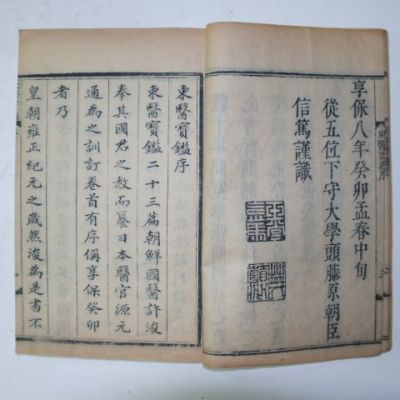 享保八年癸卯孟春中旬
從五位下守大學頭藤原朝臣
信篤謹識
東醫寶鑑序
東醫寶鑑二十三篇朝鮮國醫許浚
奉其國君之教而纂日本醫官源元
通為之訓訂卷首有序稱享保癸卯
者乃
皇朝雍正紀元之歲然浚為是書不